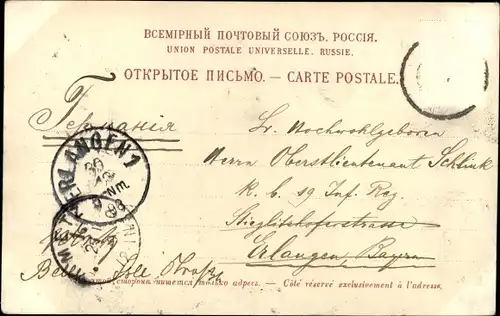 ВСЕМІРНЫЙ ПОЧТОВЫЙ СОЮЗЪ. РОССІЯ.
UNION POSTALE UNIVERSELLE. RUSSIE.
ОТКРЫТОЕ ПИСЬМО. — CARTE POSTALE.
Германія
Sr. Hochwohlgeboren
Herrn Oberstlieutenant Schlink
K. b. 19 Inf. Reg.
Stieglitzhoferstrasse
Erlangen, Bayern
ERLANGEN 1
сторона пишется только адресъ. — Côté réservé exclusivement à l'adresse.